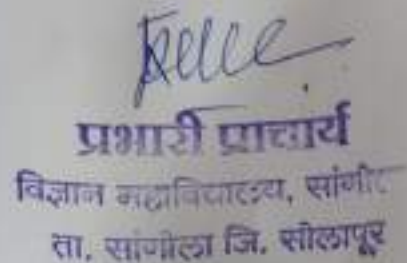 प्रभारी प्राचार्य
विज्ञान महाविद्यालय, सांगो
ता. सांगोला जि. सोलापूर